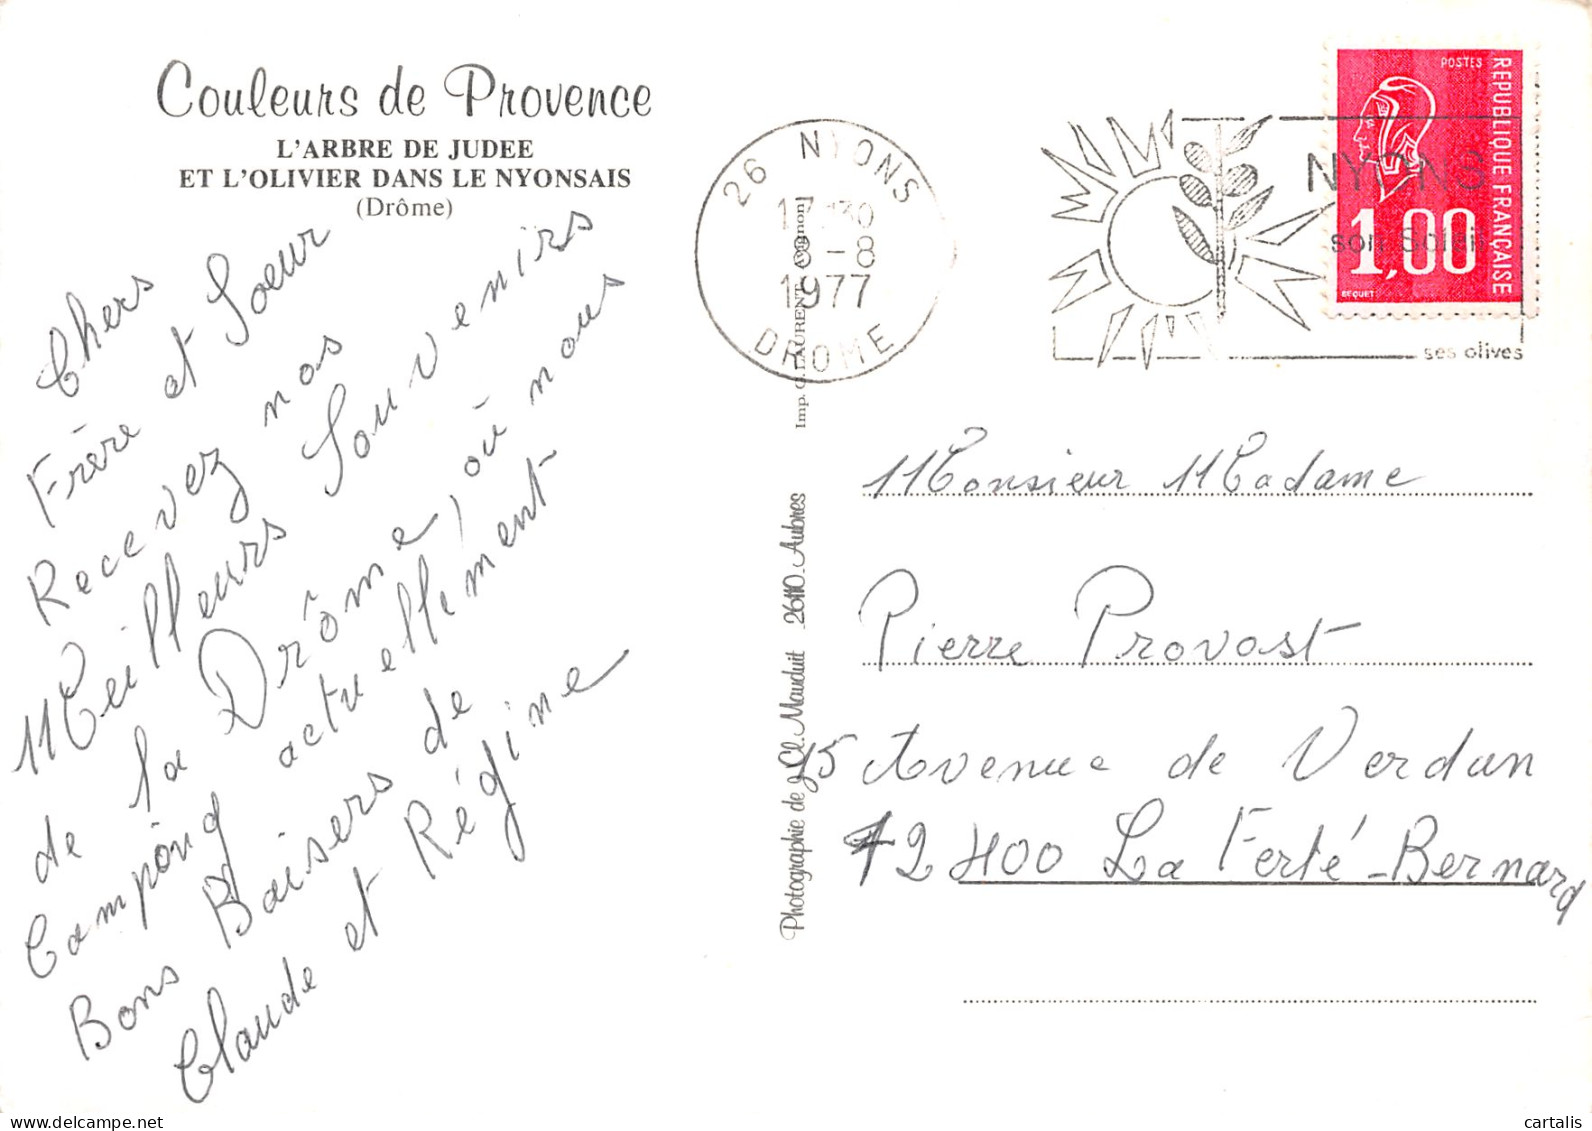 Couleurs de Provence
L'ARBRE DE JUDEE
ET L'OLIVIER DANS LE NYONSAIS
(Drôme)
Chers
Frère et Soeur
Recevez nos
Meilleurs Souvenirs
de la Drôme, où nous
Campond actuellement
Bons Baisers de
Claude et Régine
Imp. C. LAURENT
Photographie de J. Cl. Mauduit 26110 Aubres
26 NYONS
17 30
8-8
1977
DROME
NYONS
son Soleil
ses olives
POSTES
REPUBLIQUE FRANÇAISE
1,00
BEQUET
Monsieur Madame
Pierre Provost
15 Avenue de Verdun
72 400 La Ferté-Bernard
cartalis